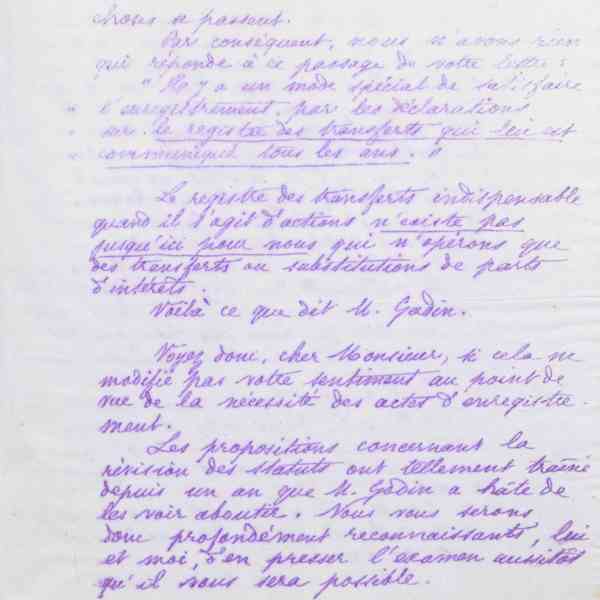 choses se passent.
Par conséquent, nous n'avons rien
qui réponde à ce passage de votre lettre :
" Il y a un mode spécial de satisfaire
" l'enregistrement par les déclarations
" sur le registre des transferts qui lui est
" communiqué tous les ans. "
Le registre des transferts indispensable
quand il s'agit d'actions n'existe pas
jusqu'ici pour nous qui n'opérons que
des transferts ou substitutions de parts
d'intérêts.
Voilà ce que dit M. Godin.
Voyez donc, cher Monsieur, si cela ne
modifie pas votre sentiment au point de
vue de la nécessité des actes d'enregistre-
ment.
Les propositions concernant la
révision des statuts ont tellement traîné
depuis un an que M. Godin a hâte de
les voir aboutir. Nous vous serons
donc profondément reconnaissants, lui
et moi, d'en presser l'examen aussitôt
qu'il vous sera possible.